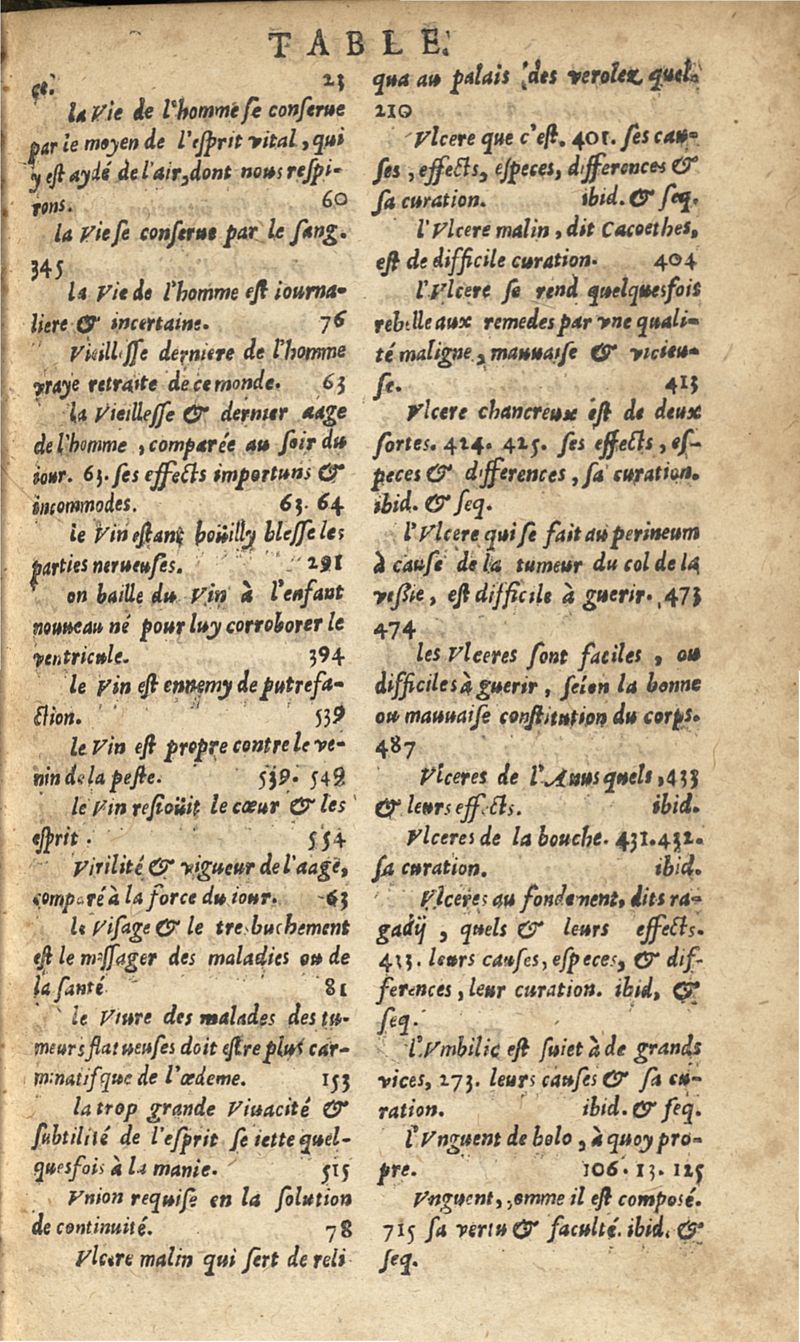 TABLE.
ce. 23
la Vie de l'homme se conserue
par le moyen de l'esprit vital, qui
y est aydé de l'air, dont nous respi-
rons. 60
la Vie se conserue par le sang.
345
la Vie de l'homme est iourna-
liere & incertaine. 76
Vieillesse derniere de l'homme
vraye retraite de ce monde. 63
la Vieillesse & dernier aage
de l'homme, comparée au soir du
iour. 63. ses effects importuns &
incommodes. 63. 64
le Vin estant boüilly blesse les
parties nerueuses. 291
on baille du Vin à l'enfant
nouueau né pour luy corroborer le
ventricule. 394
le Vin est ennemy de putrefa-
ction. 539
le Vin est propre contre le ve-
nin de la peste. 539. 549
le Vin resioüit le cœur & les
esprit. 554
Virilité & vigueur de l'aage,
comparé à la force du iour. 63
le Visage & le trebuchement
est le messager des maladies ou de
la santé 81
le Viure des malades des tu-
meurs flatueuses doit estre plus car-
minatif que de l'œdeme. 153
la trop grande Viuacité &
subtilité de l'esprit se iette quel-
quesfois à la manie. 515
Vnion requise en la solution
de continuité. 78
Vlcere malin qui sert de reli
qua au palais des verolez, quel.
210
Vlcere que c'est. 401. ses cau-
ses, effects, especes, differences &
sa curation. ibid. & seq.
l'Vlcere malin, dit Cacoethes,
est de difficile curation. 404
l'Vlcere se rend quelquesfois
rebelle aux remedes par vne quali-
té maligne, mauuaise & vicieu-
se. 413
Vlcere chancreux est de deux
sortes. 424. 425. ses effects, es-
peces & differences, sa curation.
ibid. & seq.
l'Vlcere qui se fait au perineum
à cause de la tumeur du col de la
vessie, est difficile à guerir. 473
474
les Vlceres sont faciles, ou
difficiles à guerir, selon la bonne
ou mauuaise constitution du corps.
487
Vlceres de l'Anus quels, 433
& leurs effects. ibid.
Vlceres de la bouche. 431. 432.
sa curation. ibid.
Vlceres au fondement, dits ra-
gadij, quels & leurs effects.
433. leurs causes, especes, & dif-
ferences, leur curation. ibid, &
seq.
l'Vmbilic est suiet à de grands
vices, 273. leurs causes & sa cu-
ration. ibid. & seq.
l'Vnguent de bolo, à quoy pro-
pre. 106. 13. 125
Vnguent, comme il est composé.
715 sa vertu & faculté. ibid. &
seq.